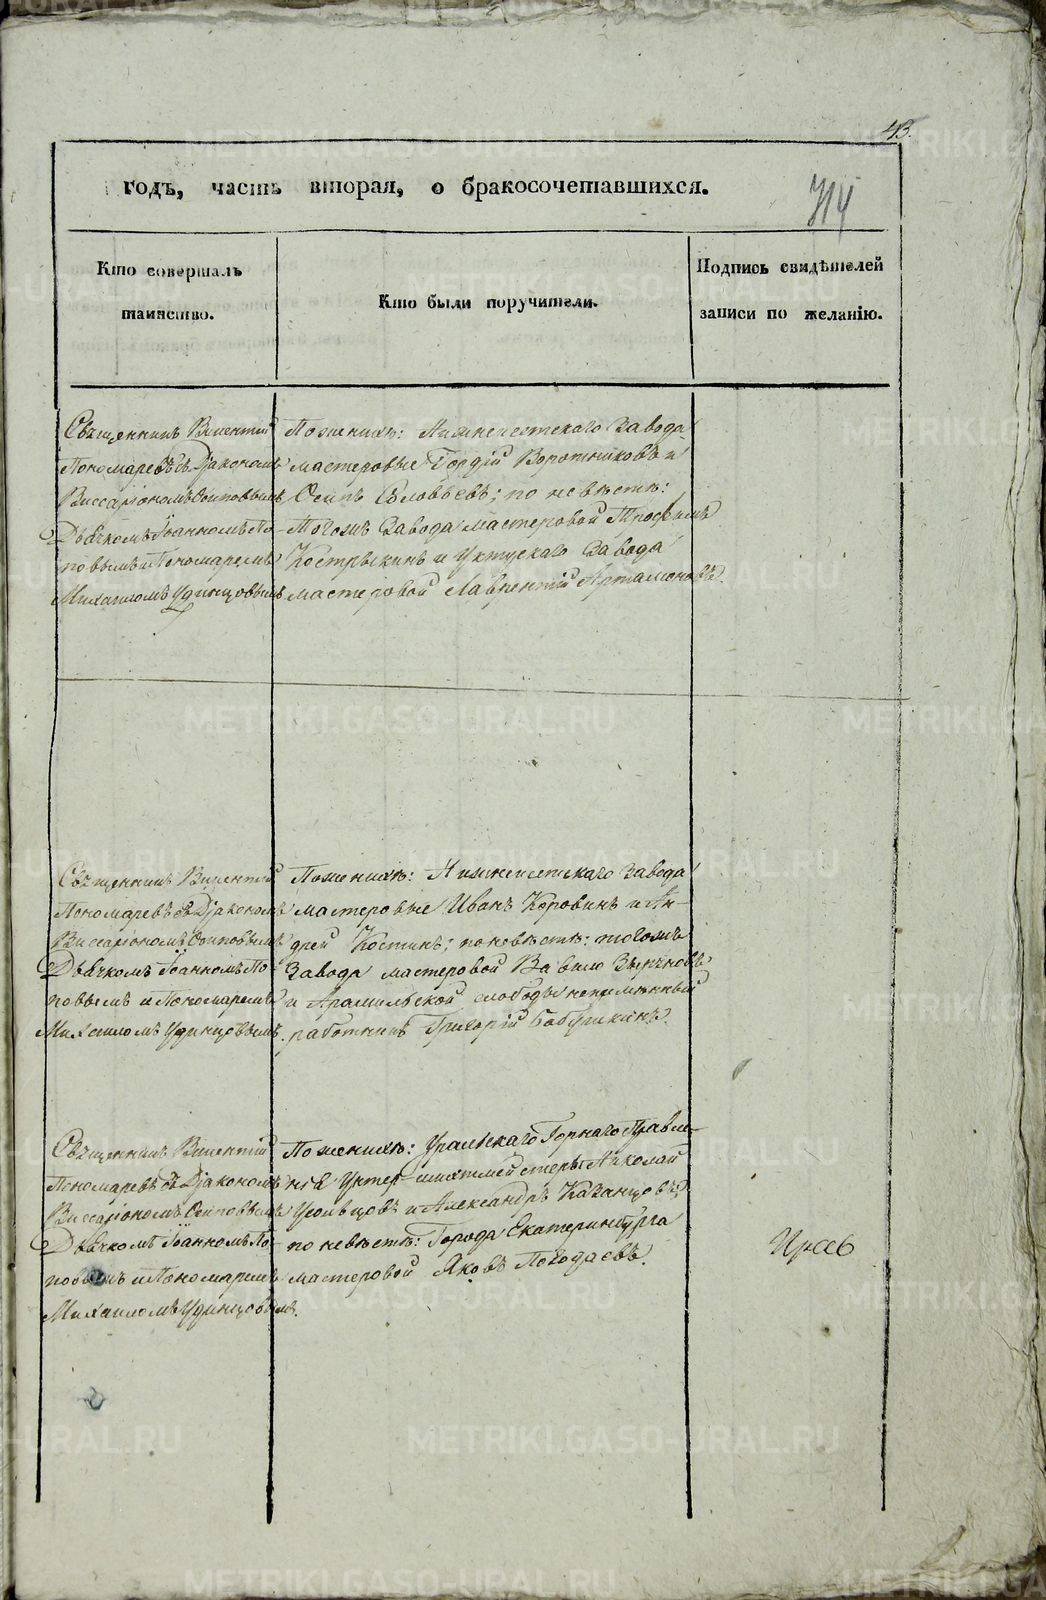 43.
годъ, часть вторая, о бракосочетавшихся.
714
Кто совершалъ
таинство.
Кто были поручители.
Подпись свидѣтелей
записи по желанію.
Священникъ Викентій
Пономаревъ съ Діакономъ
Виссаріономъ Осиповымъ
Дьячкомъ Іоанномъ По-
повымъ и Пономаремъ
Михаиломъ Удинцовымъ
По женихѣ: Нижнеисетскаго Завода
мастеровые Гордій Воротниковъ и
Осипъ Соловьевъ; по невѣстѣ:
Тогожъ Завода мастеровой Трофимъ
Кострыкинъ и Уктускаго Завода
мастеровой Лаврентій Артамоновъ.
Священникъ Викентій
Пономаревъ съ Діакономъ
Виссаріономъ Осиповымъ
Дьячкомъ Іоанномъ По-
повымъ и Пономаремъ
Михаиломъ Удинцовымъ.
По женихѣ: Нижнеисетскаго Завода
мастеровые Иванъ Коровинъ и Ан-
дрей Костинъ; по невѣстѣ: тогожъ
Завода мастеровой Вавило
и Арамильской слободы непремѣнный
работникъ Григорій Бабушкинъ.
Священникъ Викентій
Пономаревъ съ Діакономъ
Виссаріономъ Осиповымъ
Дьячкомъ Іоанномъ По-
повымъ и Пономаремъ
Михаиломъ Удинцовымъ.
По женихѣ: Уральскаго Горнаго Правле-
нія Унтер-шихтмейстеры Николай
Усольцовъ и Александръ Казанцовъ;
по невѣстѣ: Города Екатеринбурга
мастеровой Яковъ Погодаевъ.
METRIKI.GASO-URAL.RU